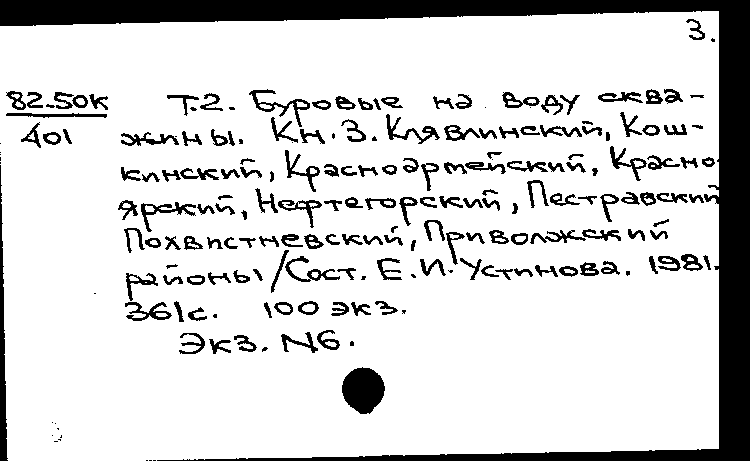 3.
82-50К Т.2. Буровые на воду сква-
401 жины. Кн. 3. Клявлинский, Кош-
кинский, Красноармейский, Красно
ярский, Нефтегорский, Пестравский
Похвистневский, Приволжский
районы/Сост. Е.И. Устинова. 1981.
361с. 100 экз.
Экз. N6.